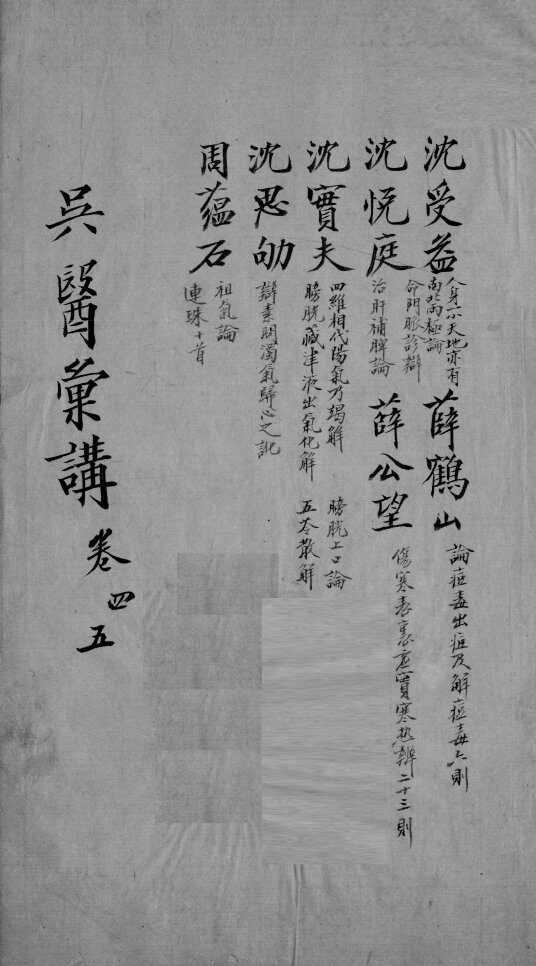 沈受益
人身小天地亦有
南北兩極論
薛鶴山
論痘毒出痘及解痘毒六則
沈悅庭
命門脈診辯
治肝補脾論
薛公望
傷寒表裏虛實寒熱辨二十三則
沈實夫
四維相代陽氣乃竭解
膀胱藏津液出氣化解
膀胱上口論
五苓散解
沈思劬
辯素問濁氣歸心之訛
周蘊石
祖氣論
連珠十首
吳醫彙講
卷四
五